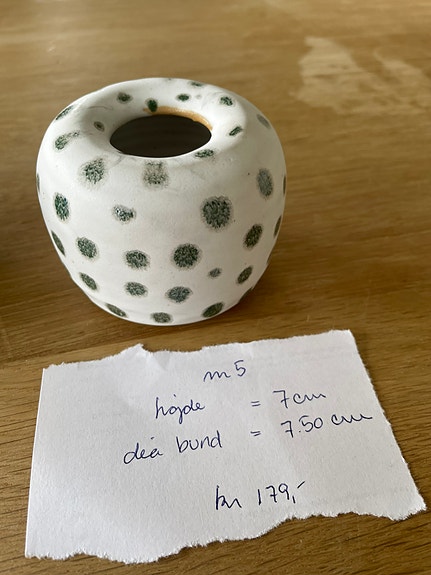 m5
højde = 7cm
dia bund = 7.50 cm
kr 179,-